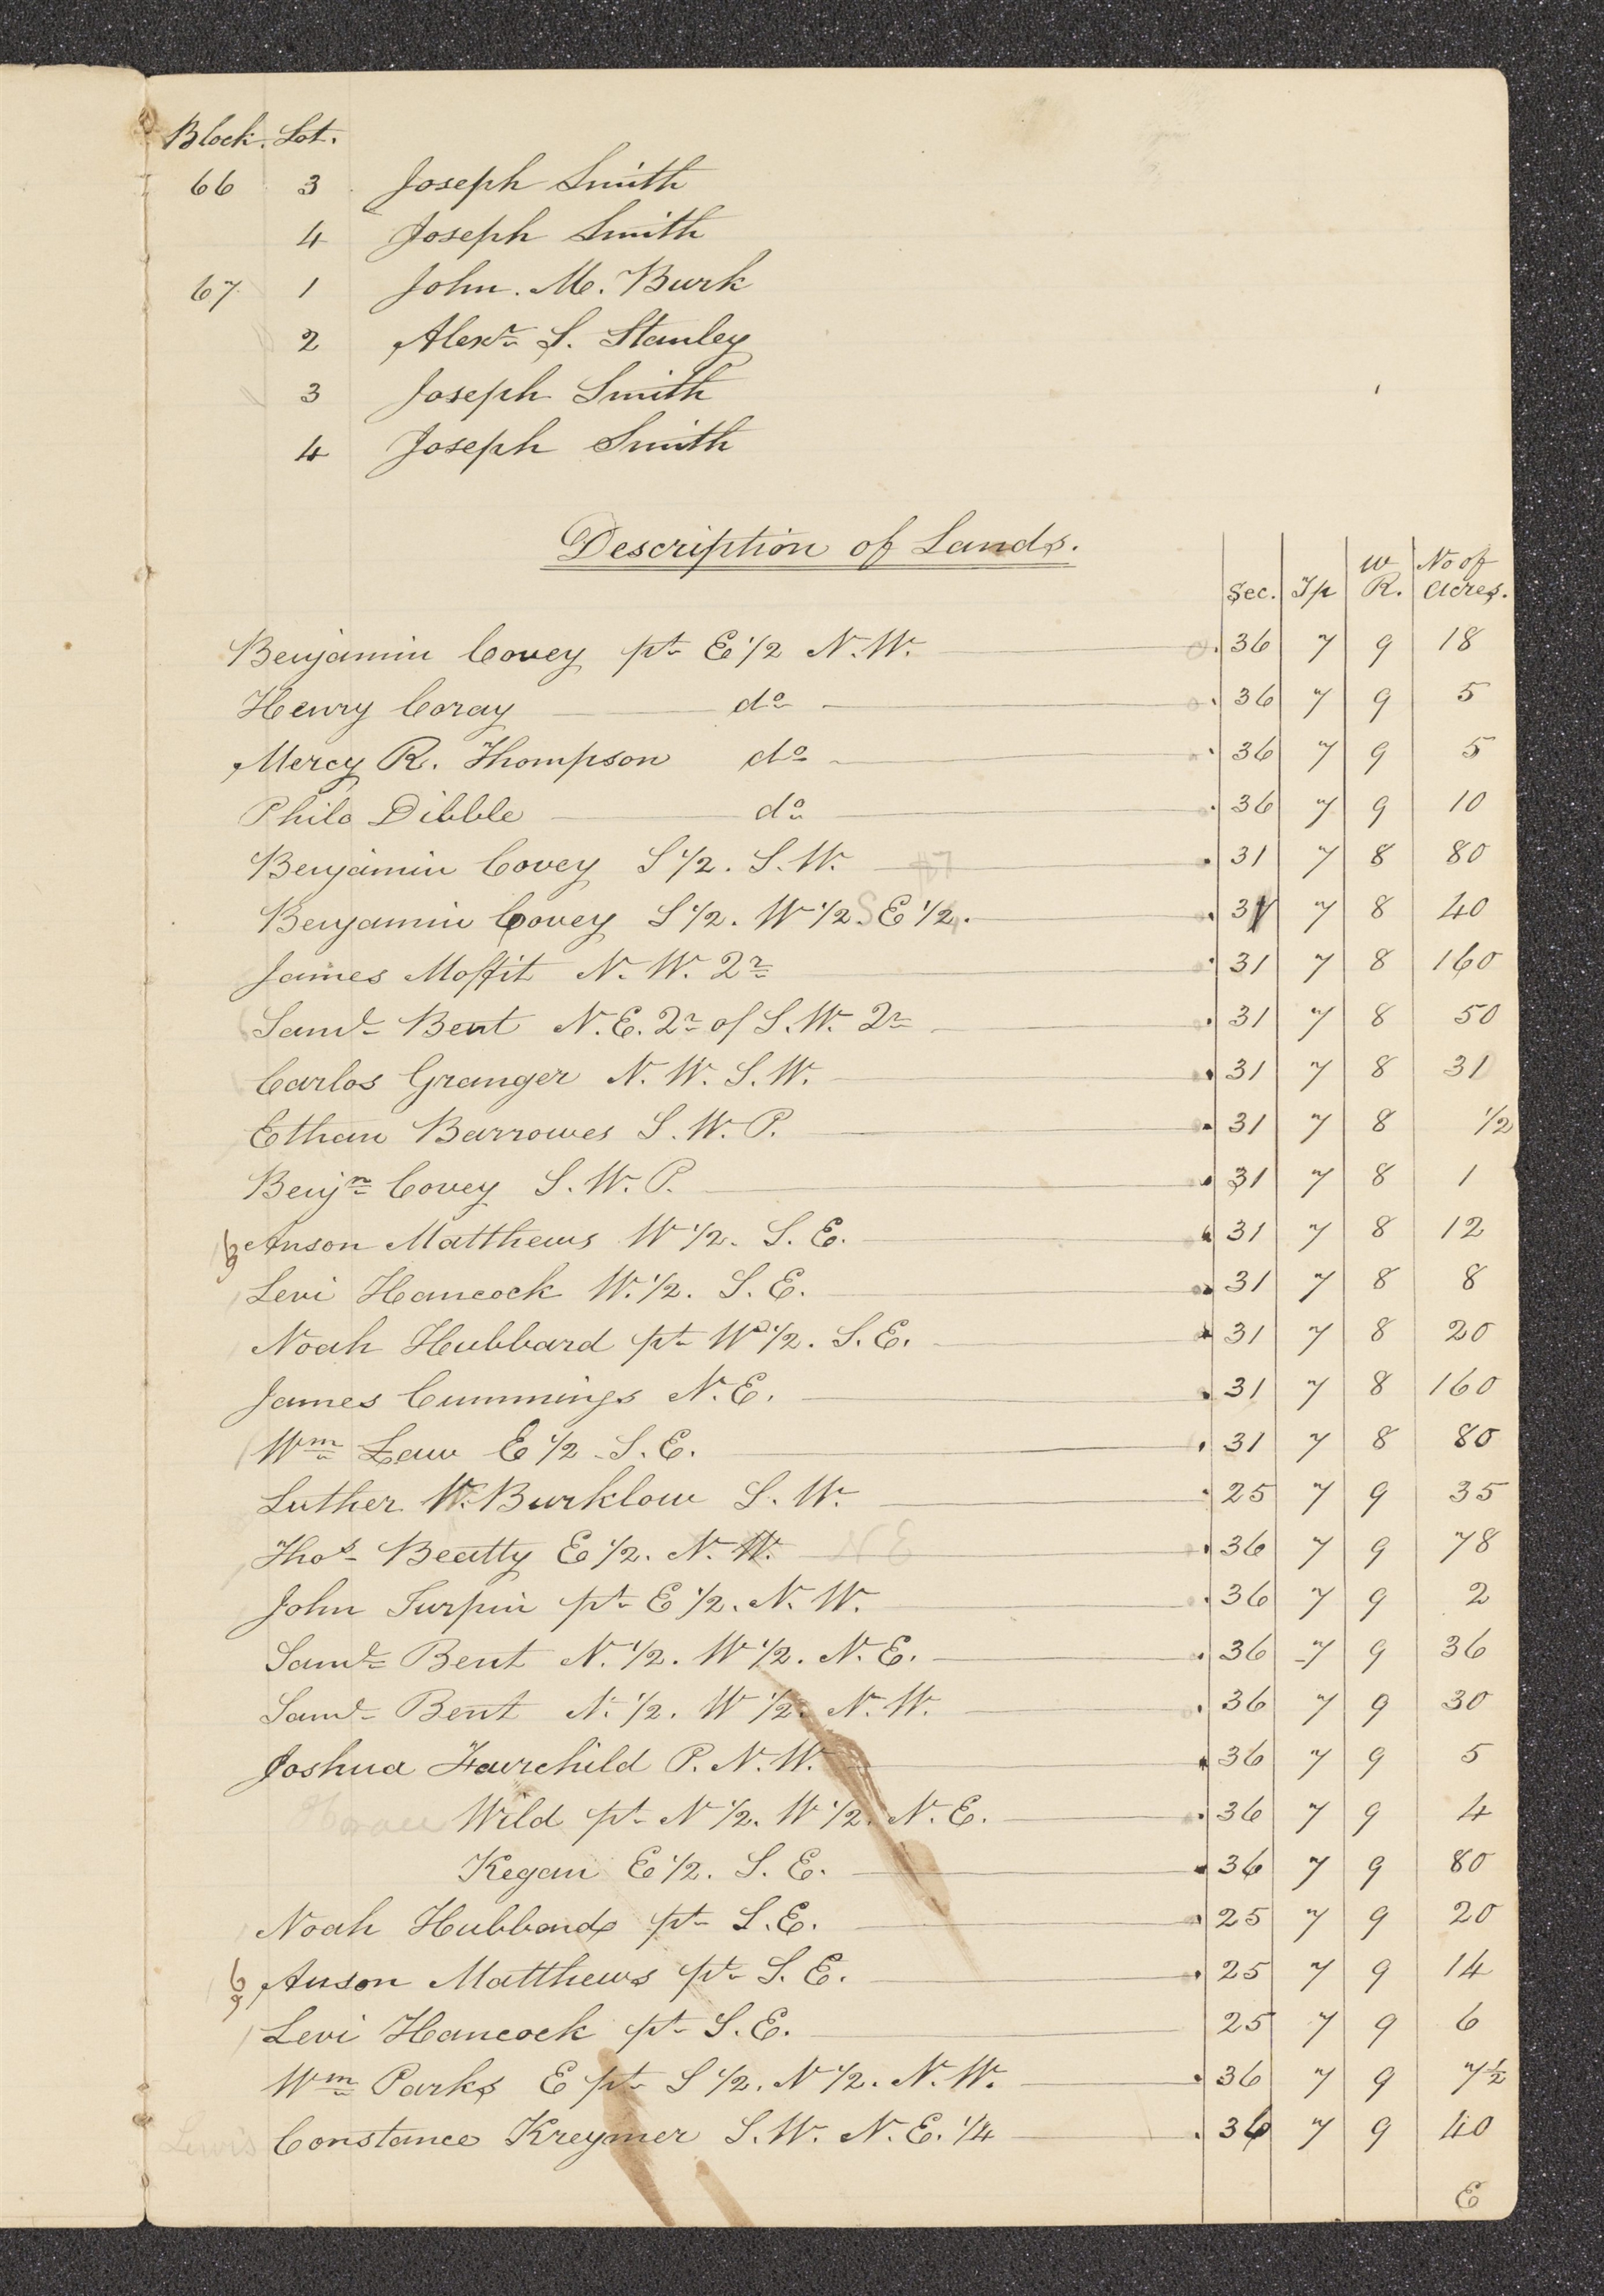 Block. Lot.
66 3 Joseph Smith
4 Joseph Smith
67 1 John. M. Burk
2 Alexr S. Stanley
3 Joseph Smith
4 Joseph Smith
Description of Lands.
Sec. Tp W R. No of Acres.
Benjamin Covey pt E 1/2 N.W. 36 7 9 18
Henry Coray do 36 7 9 5
Mercy R. Thompson do 36 7 9 5
Philo Dibble do 36 7 9 10
Benjamin Covey S 1/2. S.W. 31 7 8 80
Benjamin Covey S 1/2. W 1/2 S E 1/2. 31 7 8 40
James Moffit N. W. 2r 31 7 8 160
Saml Bent N.E. 2r of S.W. 2r 31 7 8 50
Carlos Granger N. W. S. W. 31 7 8 31
Ethan Barrowes S. W. P. 31 7 8 1/2
Benjn Covey S. W. P. 31 7 8 1
Anson Matthews W 1/2. S. E. 31 7 8 12
Levi Hancock W. 1/2. S. E. 31 7 8 8
Noah Hubbard pt W 1/2. S. E. 31 7 8 20
James Cummings N. E. 31 7 8 160
Wm Law E 1/2 S. E. 31 7 8 80
Luther W. Burklow S. W. 25 7 9 35
Thos Beatty E 1/2. N. W. N E 36 7 9 78
John Turpin pt E 1/2. N. W. 36 7 9 2
Saml Bent N. 1/2. W 1/2. N. E. 36 7 9 36
Saml Bent N. 1/2. W 1/2. N. W. 36 7 9 30
Joshua Fairchild P. N. W. 36 7 9 5
Wild pt N 1/2. W 1/2. N. E. 36 7 9 4
Kegan E 1/2. S. E. 36 7 9 80
Noah Hubbard pt S. E. 25 7 9 20
Anson Matthews pt S. E. 25 7 9 14
Levi Hancock pt S. E. 25 7 9 6
Wm Parks E pt S 1/2. N 1/2. N. W. 36 7 9 7 1/2
Lewis Constance Kreymer S. W. N. E. 1/4 36 7 9 40
E